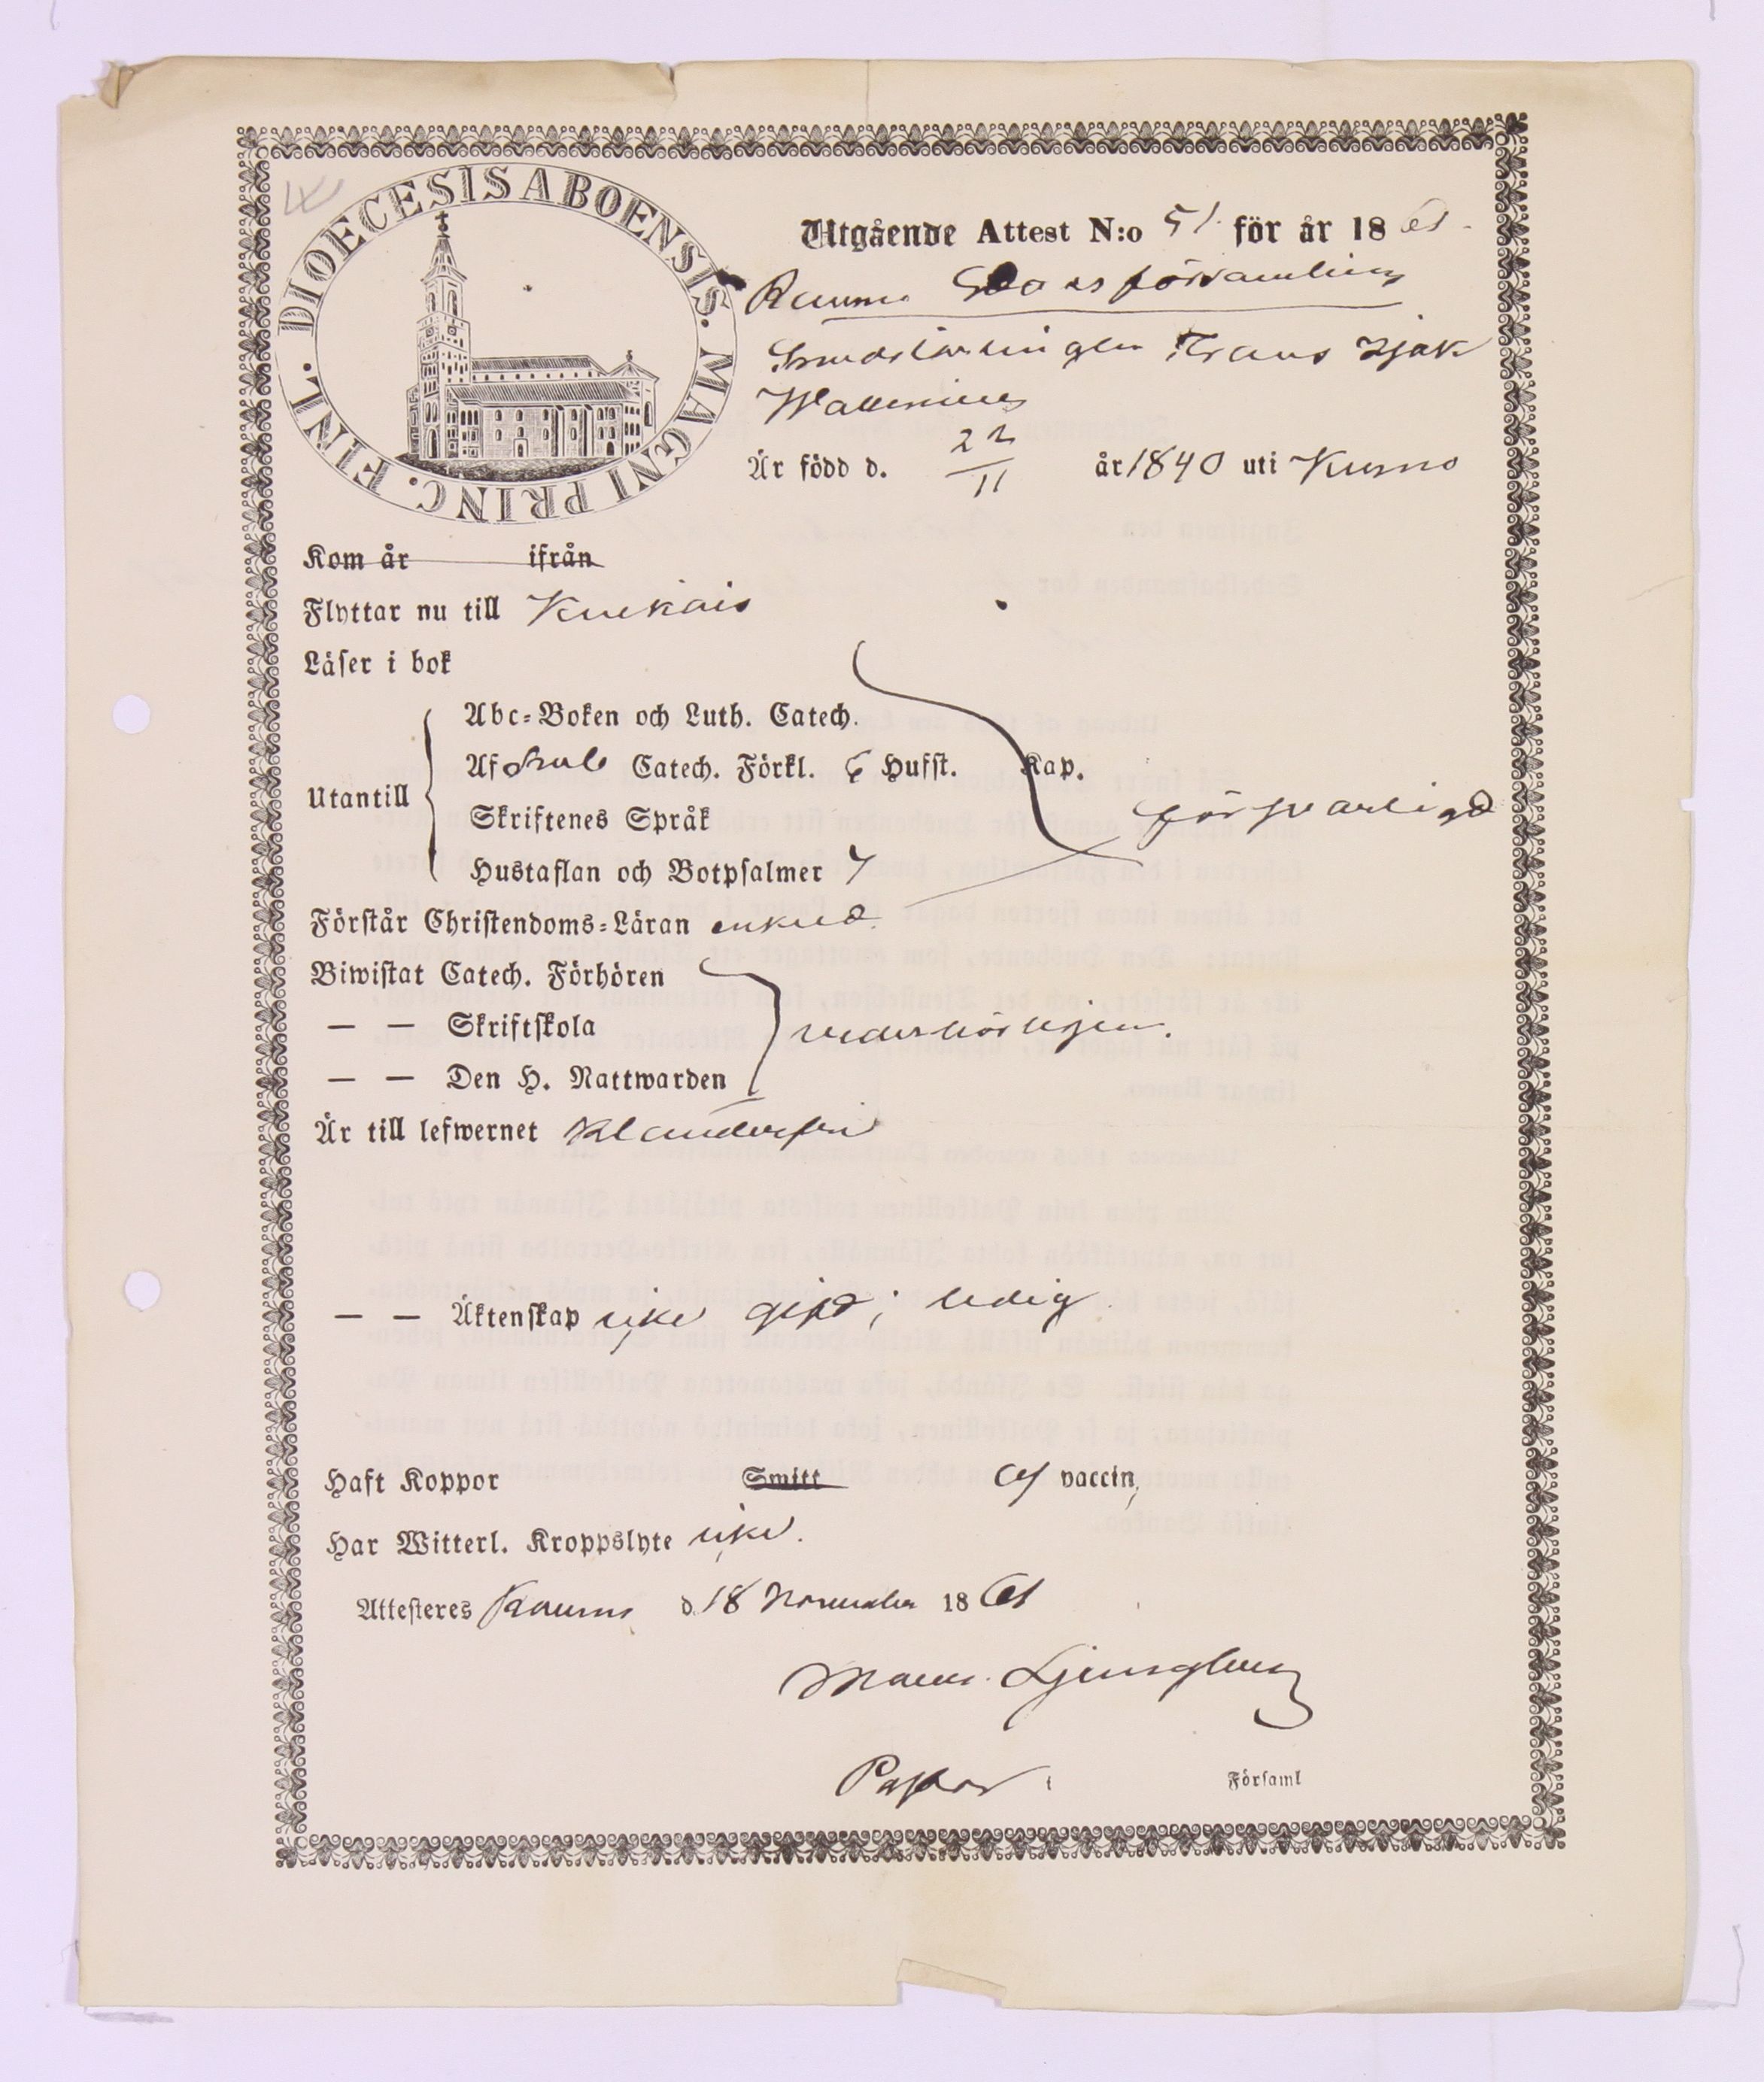 DIOECESIS ABOENSIS. MAGNI PRINC. FINL.
Utgående Attest N:o 51. för år 1861.
Raumo Stads församling
Smedslärlingen Frans Isak
Wallenius
Är född d. 22/11 år 1840 uti Kumo
Kom år ifrån
Flyttar nu till
Läser i bok
Utantill
Abc-Boken och Luth. Catech.
Af Catech. Förkl. 6 Hufst. Kap.
Skriftenes Språk
försvarligt
Hustaflan och Botpsalmer 7
Förstår Christendoms-Läran enkelt.
Biwistat Catech. Förhören
— — Skriftskola
vederbörligen.
— — Den H. Nattwarden
Är till lefwernet klanderfri
— — Äktenskap icke gift; ledig
Haft Koppor Smitt af vaccin,
Har Witterl. Kroppslyte icke.
Attesteres Raumo d. 18 November 1861
Ljungberg
Pastor i Församl